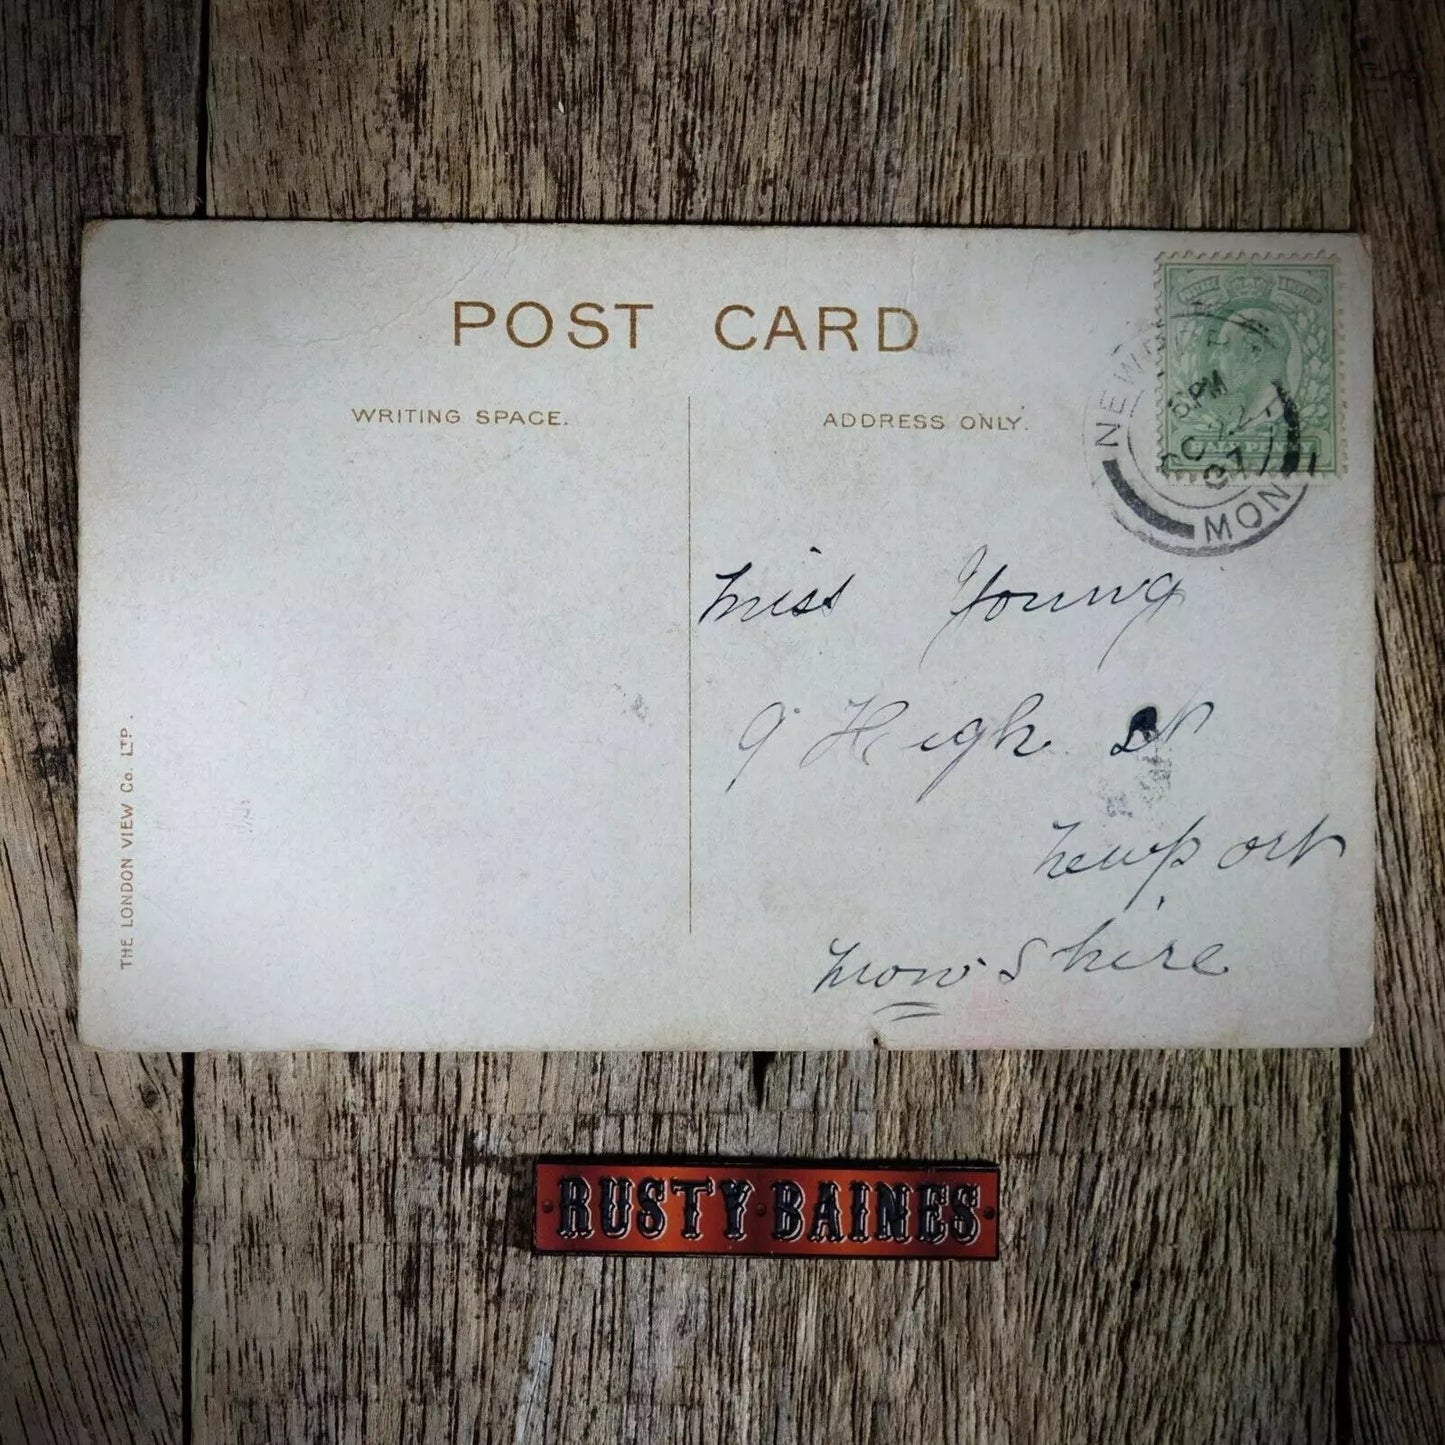 POST CARD
WRITING SPACE.
ADDRESS ONLY.
THE LONDON VIEW Co. LTD.
5 PM
OC 2
07
MON
Miss Young
9 High St
Newport
Mon Shire
RUSTY·BAINES